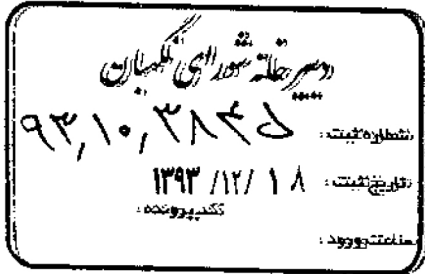 دبیرخانه شورای نگهبان
شماره ثبت : ۹۳,۱۰,۳۸۴۵
تاریخ ثبت : ۱۳۹۳ /۱۲/ ۱۸
کد پرونده :
ساعت ورود :